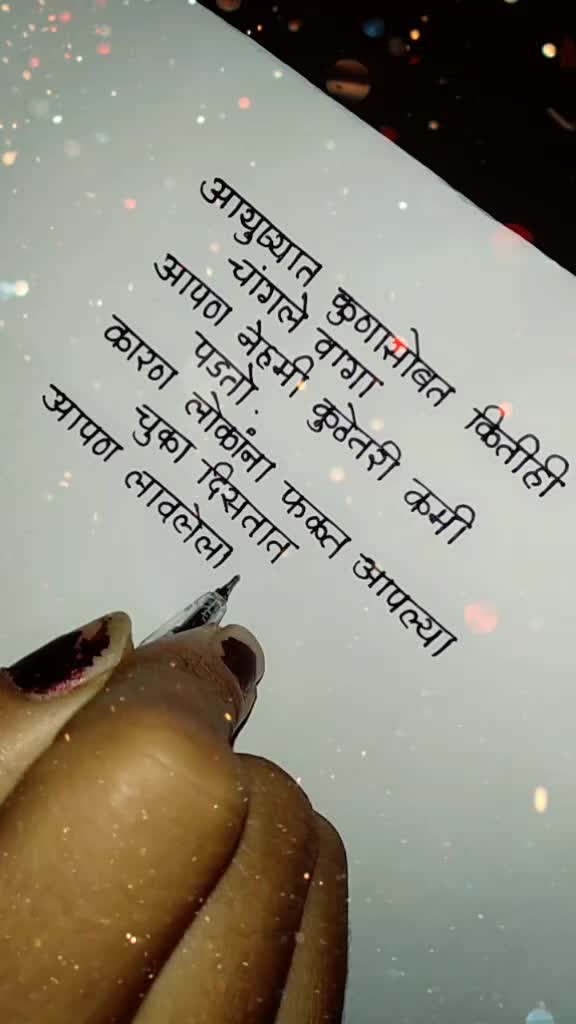 आयुष्यात कुणासोबत कितीही
चांगले वागा
आपण नेहमी कुठेतरी कमी
पडतो.
कारण लोकांना फक्त आपल्या
चुका दिसतात
आपण लावलेला